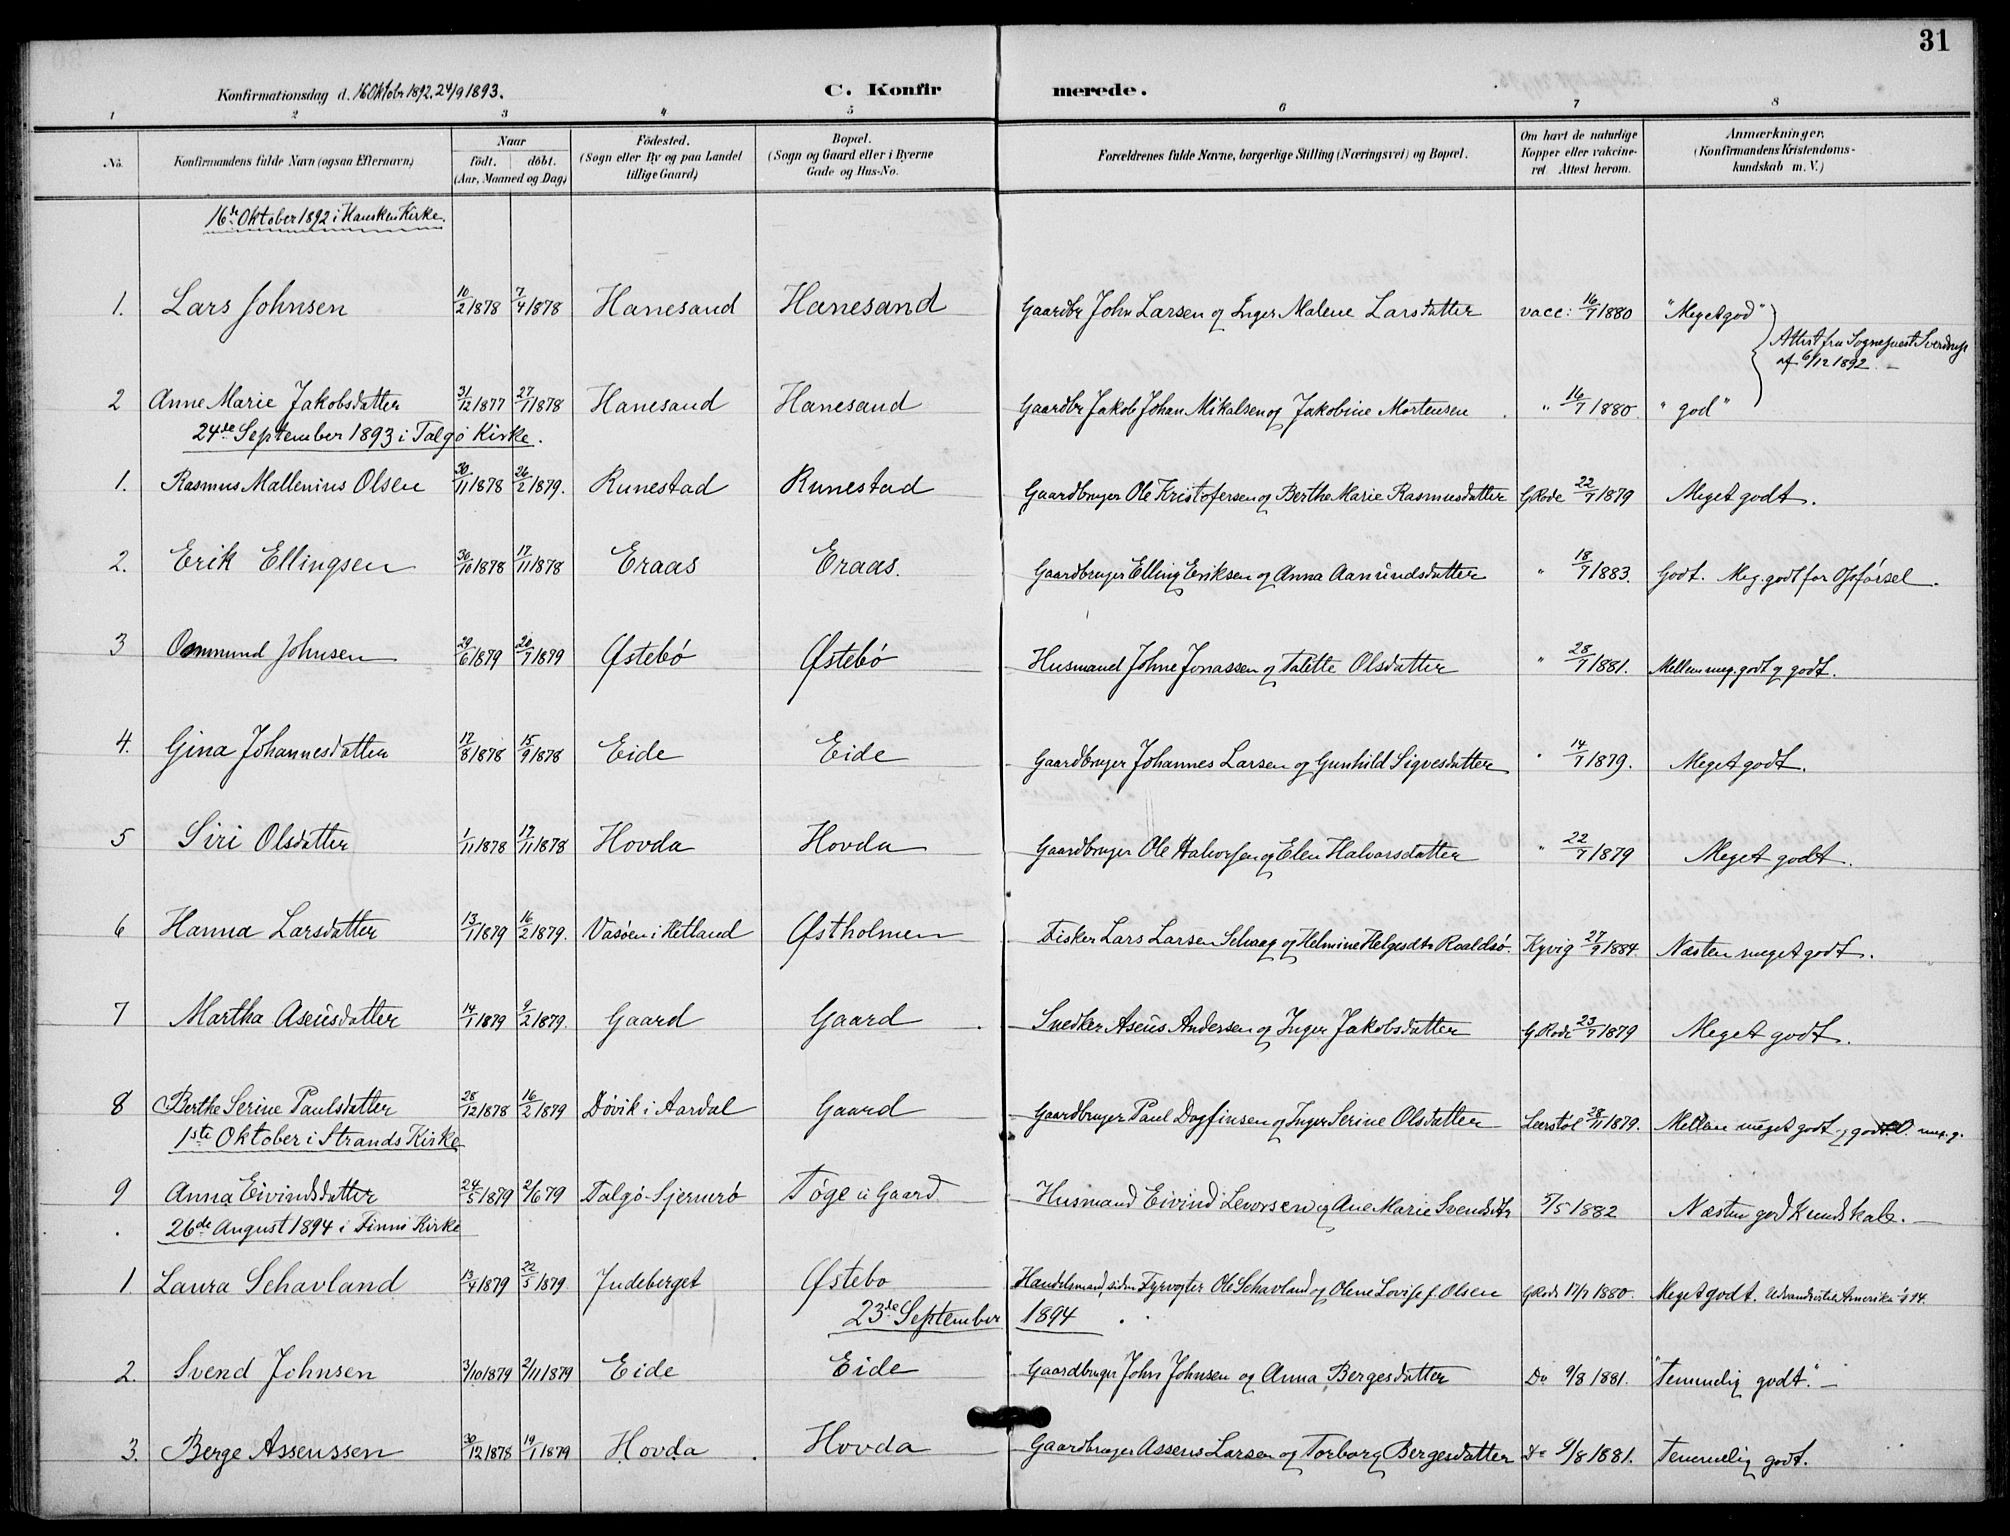 31
Konfirmationsdag d. 16 Oktobr 1892. 24/9 1893.
C. Konfirmerede.
1 2 3 4 5 6 7 8
No. Konfirmandens fulde Navn (ogsaa Efternavn) Naar födt. döbt. (Aar, Maaned og Dag) Födested. (Sogn eller By og paa Landet tillige Gaard) Bopæl. (Sogn og Gaard eller i Byerne Gade og Hus-No. Forældrenes fulde Navne, borgerlige Stilling (Næringsvei) og Bopæl. Om havt de naturlige Kopper eller vakcineret. Attest herom. Anmærkninger, (Konfirmandens Kristendomskundskab m. V.)
16de Oktober 1892 i Hausken Kirke.
1. Lars Johnsen 10/2 1878 7/4 1878 Hanesand Hanesand Gaardbr John Larsen og Inger Malene Larsdatter vacc: 16/7 1880 "Meget god"
Attest fra Sogneprest Sverdrup af 6/12 1892. –
2 Anne Marie Jakobsdatter 31/12 1877 27/1 1878 Hanesand Hanesand Gaardbr Jakob Johan Mikalsen og Jakobine Mortensen. " 16/7 1880. "god"
24de September 1893 i Talgø Kirke.
1. Rasmus Mallenius Olsen 30/11 1878 26/2 1879. Runestad Runestad Gaardbruger Ole Kristofersen og Berthe Marie Rasmusdatter G Rode 22/7 1879 Meget godt.
2. Erik Ellingsen 30/10 1878 17/11 1878 Eraas Eraas. Gaardbruger Elling Eriksen og Anna Aamundsdatter " 18/7 1883. Godt. Meg. godt for Opførsel.
3 Osmund Johnsen 29/6 1879 20/7 1879 Østebø Østebø Husmand Johne Jonassen og Talette Olsdatter " 28/7 1881. Mellem meg. godt og godt.
4. Gina Johannesdatter 17/8 1878 15/9 1878 Eide Eide Gaardbruger Johannes Larsen og Gunhild Sigvesdatter " 14/7 1879. Meget godt.
5 Siri Olsdatter 1/11 1878 17/11 1878 Hovda Hovda Gaardbruger Ole Halvorsen og Elen Halvorsdatter " 22/7 1879 Meget godt.
6 Hanna Larsdatter 13/1 1879 16/2 1879. Vasøen i Hetland Østholmen Fisker Lars Larsen Schaag og Helmine Helgesdtr Roaldsø. Kyvig 27/9 1884. Næsten meget godt.
7 Martha Aseüsdatter 14/1 1879 9/2 1879. Gaard Gaard Snedker Aseüs Andersen og Inger Jakobsdatter G. Rode 23/7 1879 Meget godt.
8 Berthe Serine Paulsdatter 28/12 1878 16/2 1879 Døvik i Aardal Gaard Gaardbruger Paul Dagfinsen og Inger Serine Olsdatter Leerstøl 28/11 1879. Mellem meget godt og godt. O. meg. g.
1ste Oktober i Strands Kirke
9 Anna Eivindsdatter 24/5 1879 2/6 79 Talgø-Sjernerø Tøge u Gaard Husmand Eivind Levorsen og Ane Marie Svendsdtr 5/5 1882 Næsten god Kundskab. –
26de August 1894 i Finnø Kirke
1. Laura Schavland 13/4 1879 22/5 1879. Judeberget Østebø Handelsmand, siden Fyrvogter Ole Schavland og Olene Lovise f. Olsen G Rode 17/7 1880. Meget godt. Udvandret til Amerika
23de September 1894
2. Svend Johnsen 3/10 1879 2/11 1879 Eide Eide Gaardbruger John Johnsen og Anna Bergesdatter Do 9/8 1881. "Temmelig godt." –
3. Berge Asseussen 30/12 1878 19/1 1879 Hovda. Hovda Gaardbruger Asseus Larsen og Torborg Bergesdatter Do 9/8 1881. Temmelig godt.